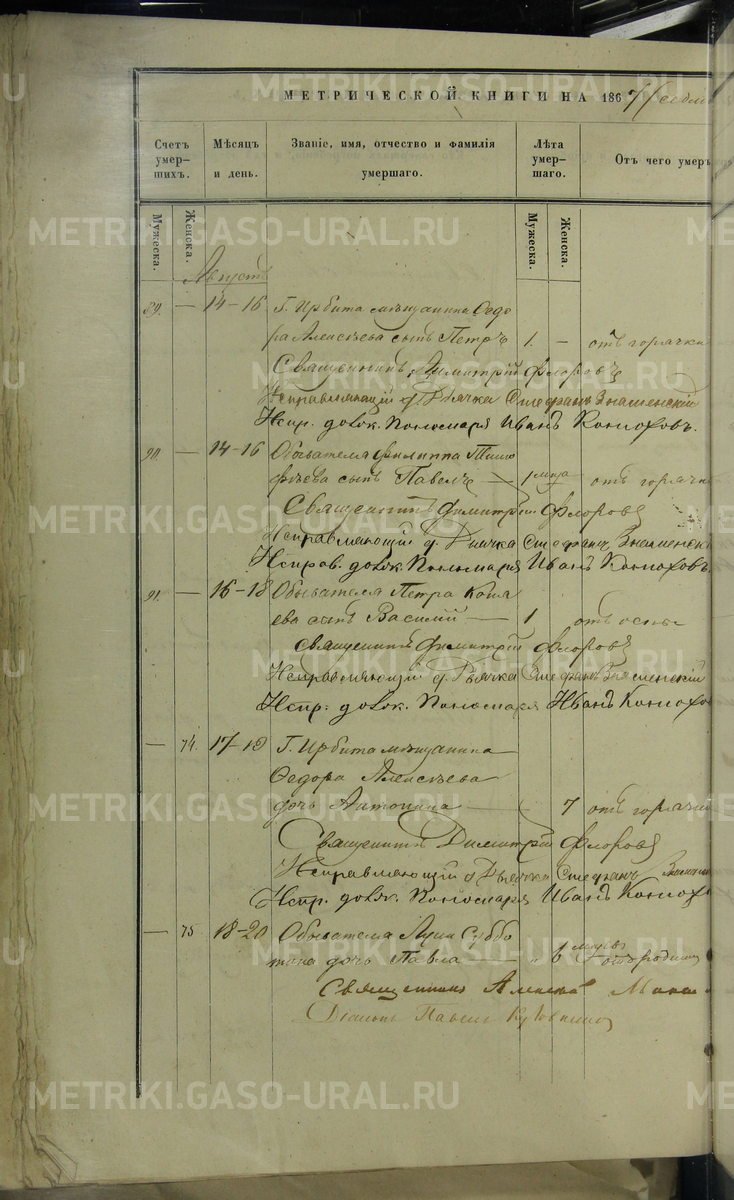 МЕТРИЧЕСКОЙ КНИГИ НА 1867
Счетъ умер- шихъ. Мѣсяцъ и день. Званіе, имя, отчество и фамилія умершаго. Лѣта умер- шаго. Отъ чего умер
Мужеска. Женска. Мужеска. Женска.
Августъ
89. — 14-16 Г. Ирбита мѣщанина Ѳедо
ра Алексѣева сынъ Петръ 1. — отъ горячки
Священникъ Димитрій Флоровъ
Исправляющій д. Дьячка Стефанъ Знаменскій
Испр. долж. Пономаря Иванъ Конюховъ.
90. — 14-16 Обывателя Филиппа Тимо
фѣева сынъ Павелъ — 1 отъ горячки
Священникъ Димитрій Флоровъ
Исправляющій д. Дьячка Стефанъ Знаменск
Исправ. долж. Пономаря Иванъ Конюховъ.
91. — 16-18 Обывателя Петра
ева сынъ Василій — 1 отъ оспы
Священникъ Димитрій Флоровъ
Исправляющій д. Дьячка Стефанъ Знаменскій
Испр. долж. Пономаря Иванъ Конюхов
— 74. 17-19 Г. Ирбита мѣщанина
Ѳедора Алексѣева
дочь Антонина — 7 отъ горячки
Священникъ Димитрій Флоровъ
Исправляющій д. Дьячка Стефанъ Знаменск
Испр. долж. Пономаря Иванъ Конюхов
— 75 18-20 Обывателя Луки Суббо
тина дочь Павла — " 6
Священникъ Алексѣй
Діаконъ Павелъ
METRIKI.GASO-URAL.RU